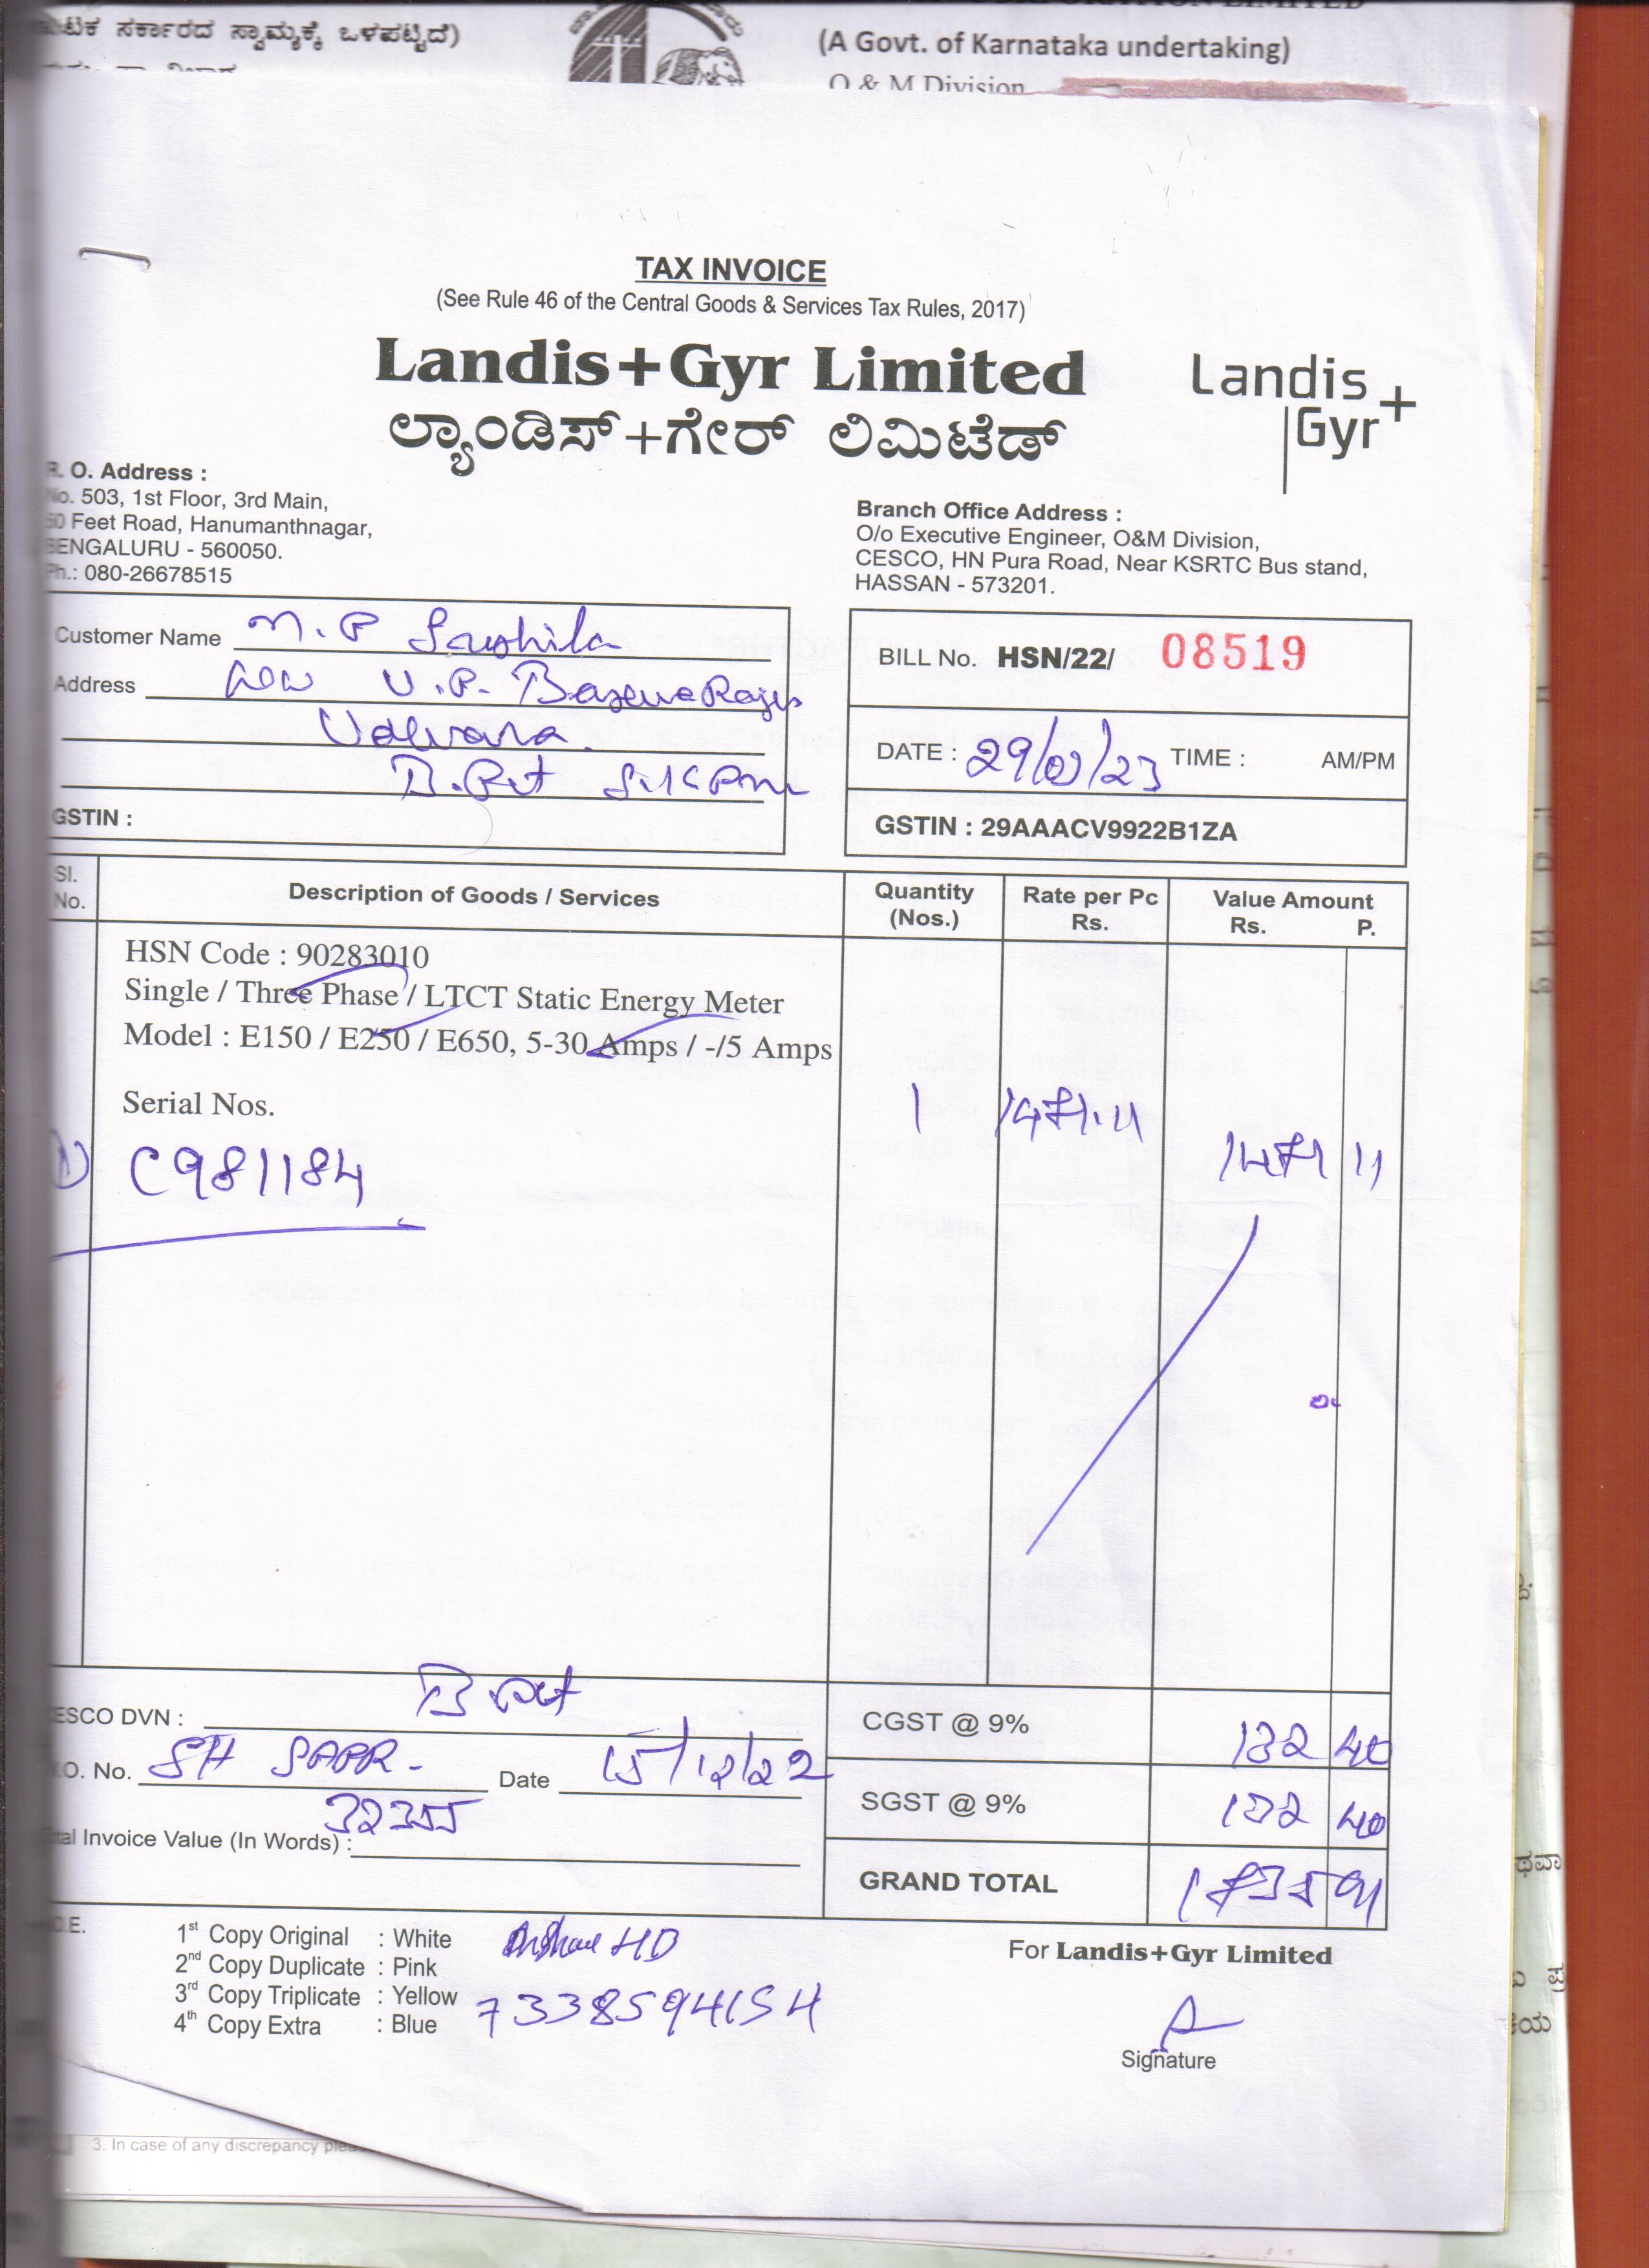 ಸರ್ಕಾರದ ಸ್ವಾಮ್ಯಕ್ಕೆ ಒಳಪಟ್ಟಿದೆ)
(A Govt. of Karnataka undertaking)
O & M Division
TAX INVOICE
(See Rule 46 of the Central Goods & Services Tax Rules, 2017)
Landis+Gyr Limited
ಲ್ಯಾಂಡಿಸ್+ಗೇರ್ ಲಿಮಿಟೆಡ್
Landis+
Gyr
R. O. Address :
No. 503, 1st Floor, 3rd Main,
Feet Road, Hanumanthnagar,
BENGALURU - 560050.
Ph.: 080-26678515
Branch Office Address :
O/o Executive Engineer, O&M Division,
CESCO, HN Pura Road, Near KSRTC Bus stand,
HASSAN - 573201.
Customer Name M.P Sushila
Address U.P. BasavaRaju
Udevara
GSTIN :
BILL No. HSN/22/ 08519
DATE : TIME : AM/PM
GSTIN : 29AAACV9922B1ZA
Sl. No. Description of Goods / Services Quantity (Nos.) Rate per Pc Rs. Value Amount Rs. P.
HSN Code : 90283010
Single / Three Phase / LTCT Static Energy Meter
Model : E150 / E250 / E650, 5-30 Amps / -/5 Amps
Serial Nos. 1 1471.11
1) C981184 1471 11
CESCO DVN :
CGST @ 9% 132 40
No. Date 15/12/22
32355
SGST @ 9% 132 40
Invoice Value (In Words) :
GRAND TOTAL 1735 91
1st Copy Original : White
2nd Copy Duplicate : Pink
3rd Copy Triplicate : Yellow
4th Copy Extra : Blue
7338594154
For Landis+Gyr Limited
Signature
3. In case of any discrepancy